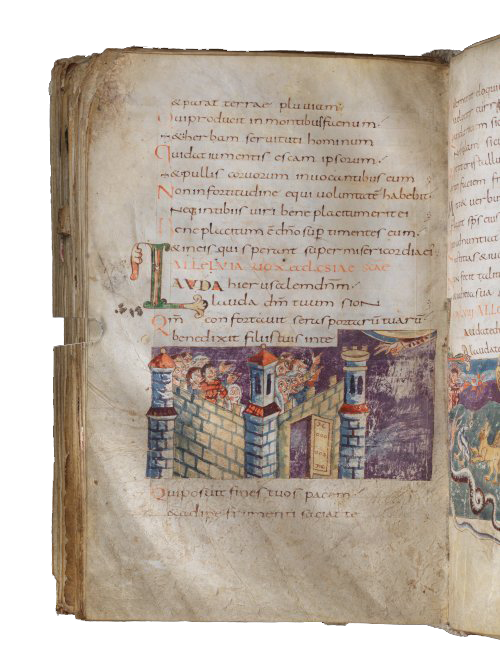 & parat terrae pluviam
Qui producit in montibus faenum
& herbam servituti hominum
Qui dat iumentis escam ipsorum
& pullis corvorum invocantibus eum
Non in fortitudine equi voluntate habebit
Nec in tibiis viri bene placitum erit ei
Bene placitum ē dn̄o sup timentes eum
& in eis qui sperant super misericordia ei
ALLELVIA VOX
LAVDA hierusalem dn̄m
lauda dm̄ tuum sion
Qm̄ confortavit seras portarū tuarū
benedixit filiis tuis in te
Qui posuit fines tuos pacem
& adipe frumenti satiat te